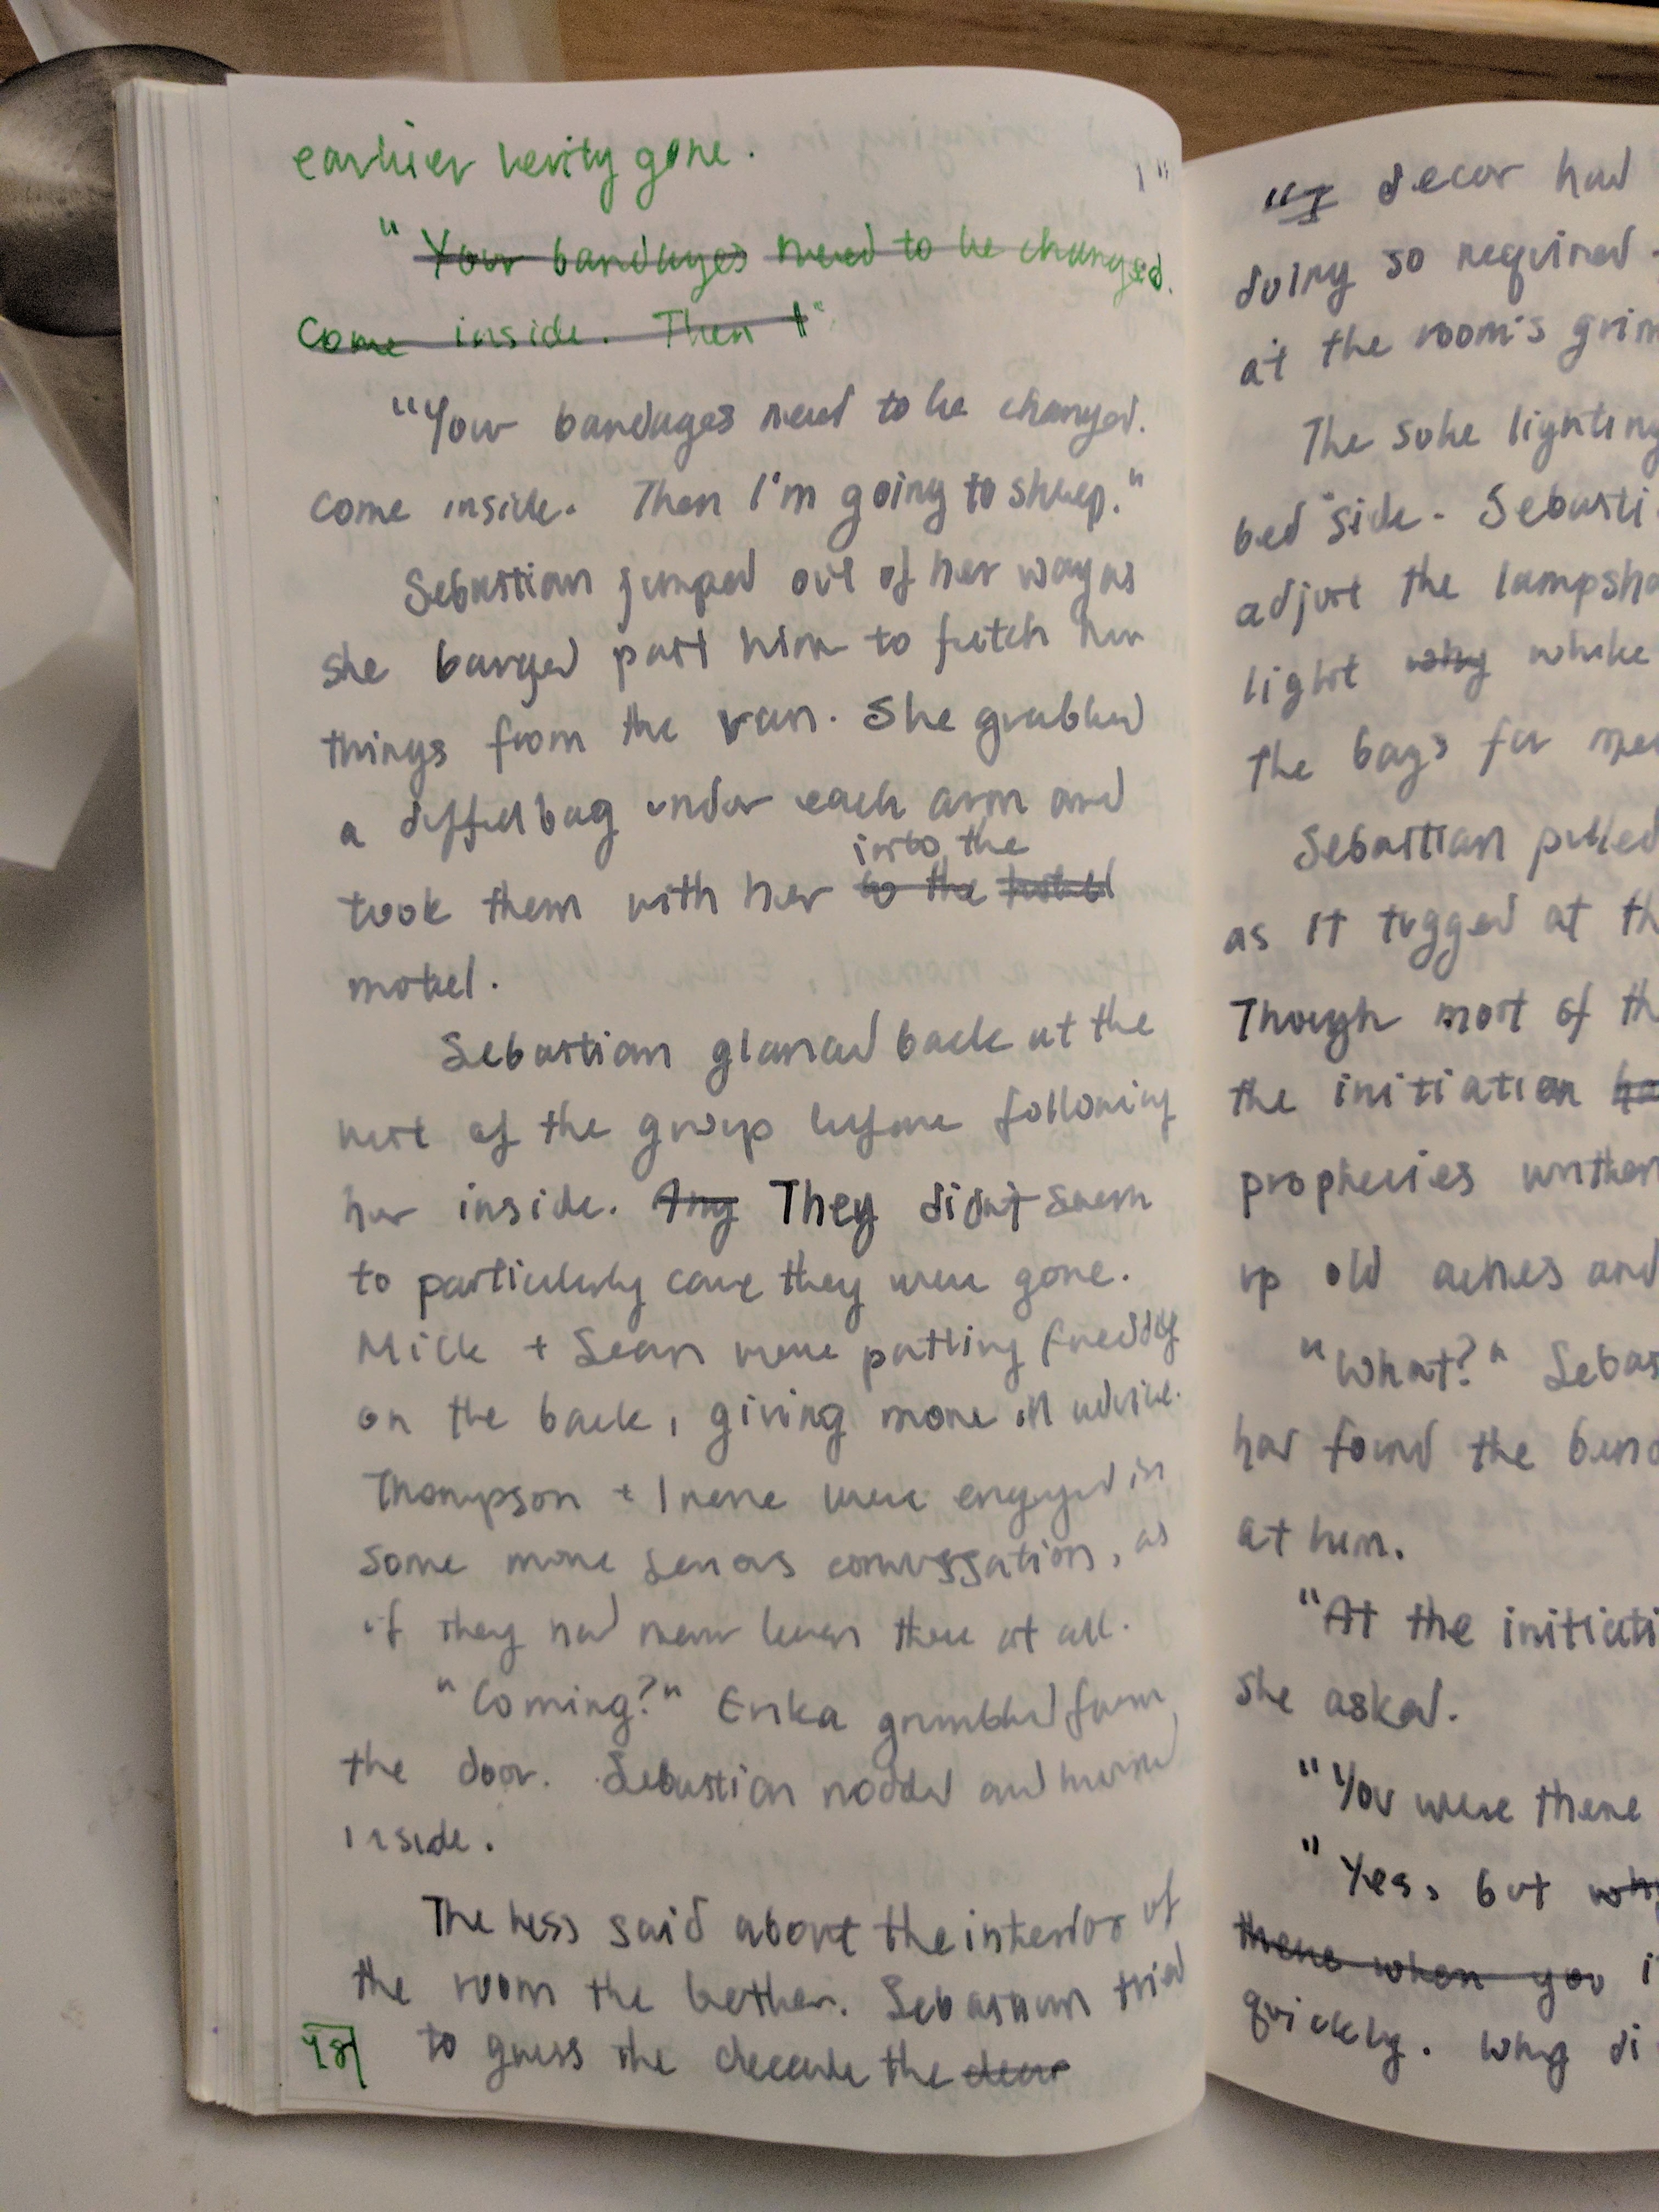 earlier verity gone.
" Your bandages need to be changed.
Come inside. Then t"
"Your bandages need to be changed.
Come inside. Then I'm going to sleep."
Sebastian jumped out of her way as
she barged past him to fetch her
things from the van. She grabbed
a duffel bag under each arm and
into the
took them with her to the hotel
motel.
Sebastian glanced back at the
rest of the group before following
her inside. Any They didn't seem
to particularly care they were gone.
Mick + Sean were patting Freddy
on the back, giving more ill advice.
Thompson + Irene were engaged in
some more serious conversation, as
if they had never been there at all.
"Coming?" Erika grumbled from
the door. Sebastian nodded and hurried
inside.
The less said about the interior of
the room the better. Sebastian tried
to guess the decade the decor
48
"I decor had
doing so required
at the room's
The sole lighting
bed side. Sebasti
adjust the lampsha
light why while
the bags for
Sebastian pulled
as it tugged at th
Though most of th
the initiation ha
prophecies written
up old aches and
"What?" Sebas
has found the
at him.
"At the initiati
she asked.
"You were there
"Yes, but why
there when you i
quickly. Why di